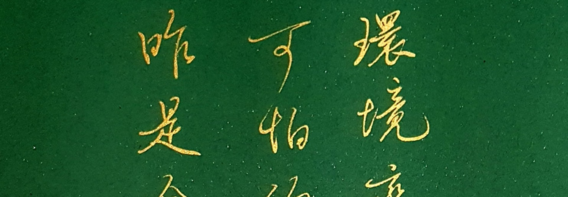 環境
可怕
昨是